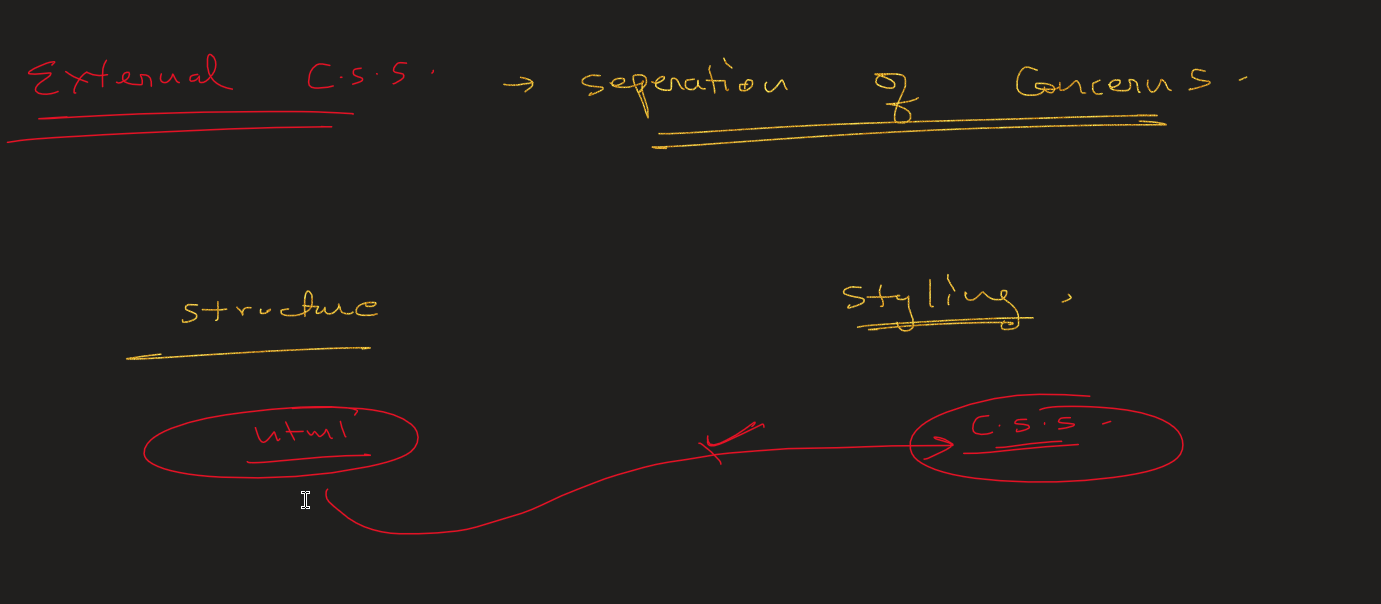 External C.S.S. → seperation of Concerns.
structure styling,
html C.S.S.